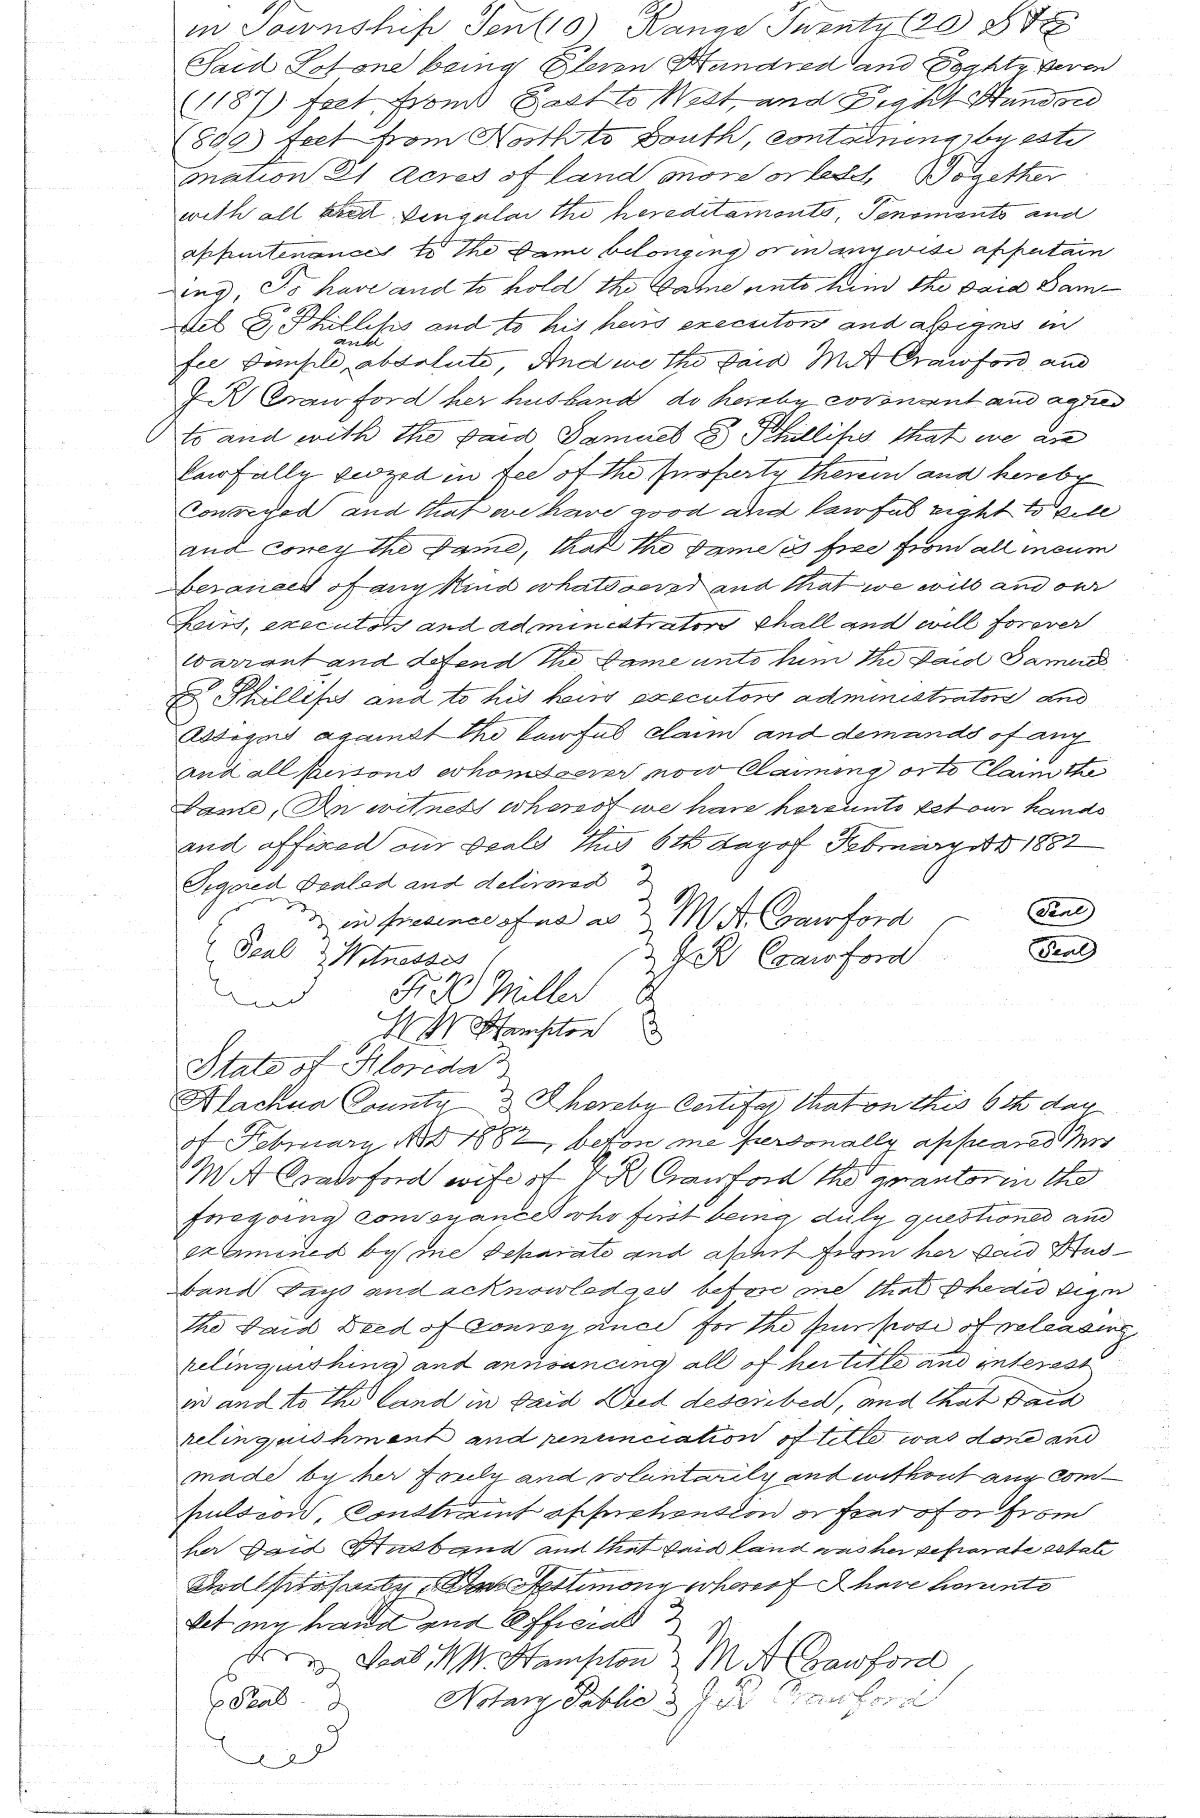 in Township Ten (10) Range Twenty (20) S & E
Said Lot one being Eleven Hundred and Eighty Seven
(1187) feet from East to West, and Eight Hundred
(800) feet from North to South, containing by este
mation 21 Acres of land more or less, Together
with all and Singular the hereditaments, Tenements and
appurtenances to the Same belonging or in anywise appertain
ing, To have and to hold the Same unto him the said Sam-
uel E Phillips and to his heirs executors and assigns in
and
fee Simple absolute, And we the Said M A Crawford and
J R Crawford her husband do hereby covenant and agree
to and with the Said Samuel E Phillips that we are
lawfully seized in fee of the property therein and hereby
Conveyed and that we have good and lawful right to Sell
and coney the Same, that the Same is free from all incum
berances of any Kind whatsoever and that we will and our
heirs, executors and administrators Shall and will forever
Warrant and defend the Same unto him the Said Samuel
E Phillips and to his heirs executors administrators and
Assigns against the lawful claim and demands of any
and all persons whomsoever now Claiming or to Claim the
Same, In witness whereof we have hereunto set our hands
and affixed our Seals this 6th day of February AD 1882
Signed Sealed and delivered
in presence of us as M A. Crawford Seal
Seal Witnesses J R Crawford Seal
Miller
W W Hampton
State of Floreda
Alachua County I hereby Certify that on this 6th day
of February AD 1882, before me personally appeared Mrs
M A Crawford wife of J R Crawford the grantor in the
foregoing conveyance who first being duly questioned and
examined by me Separate and apart from her Said Hus-
band Says and acknowledges before me that She did sign
the Said Deed of Conveyance for the purpose of releasing
relinquishing and announcing all of her title and interest
in and to the land in Said Deed described, and that Said
relinquishment and renunciation of title was done and
made by her freely and voluntarily and without any com-
pulsion, Constraint apprehension or fear of or from
her Said Husband and that Said land was her separate estate
and property, In Testimony whereof I have hereunto
Set my hand and Official
Seal, W W. Hampton M A Crawford
Seal Notary Public J R Crawford